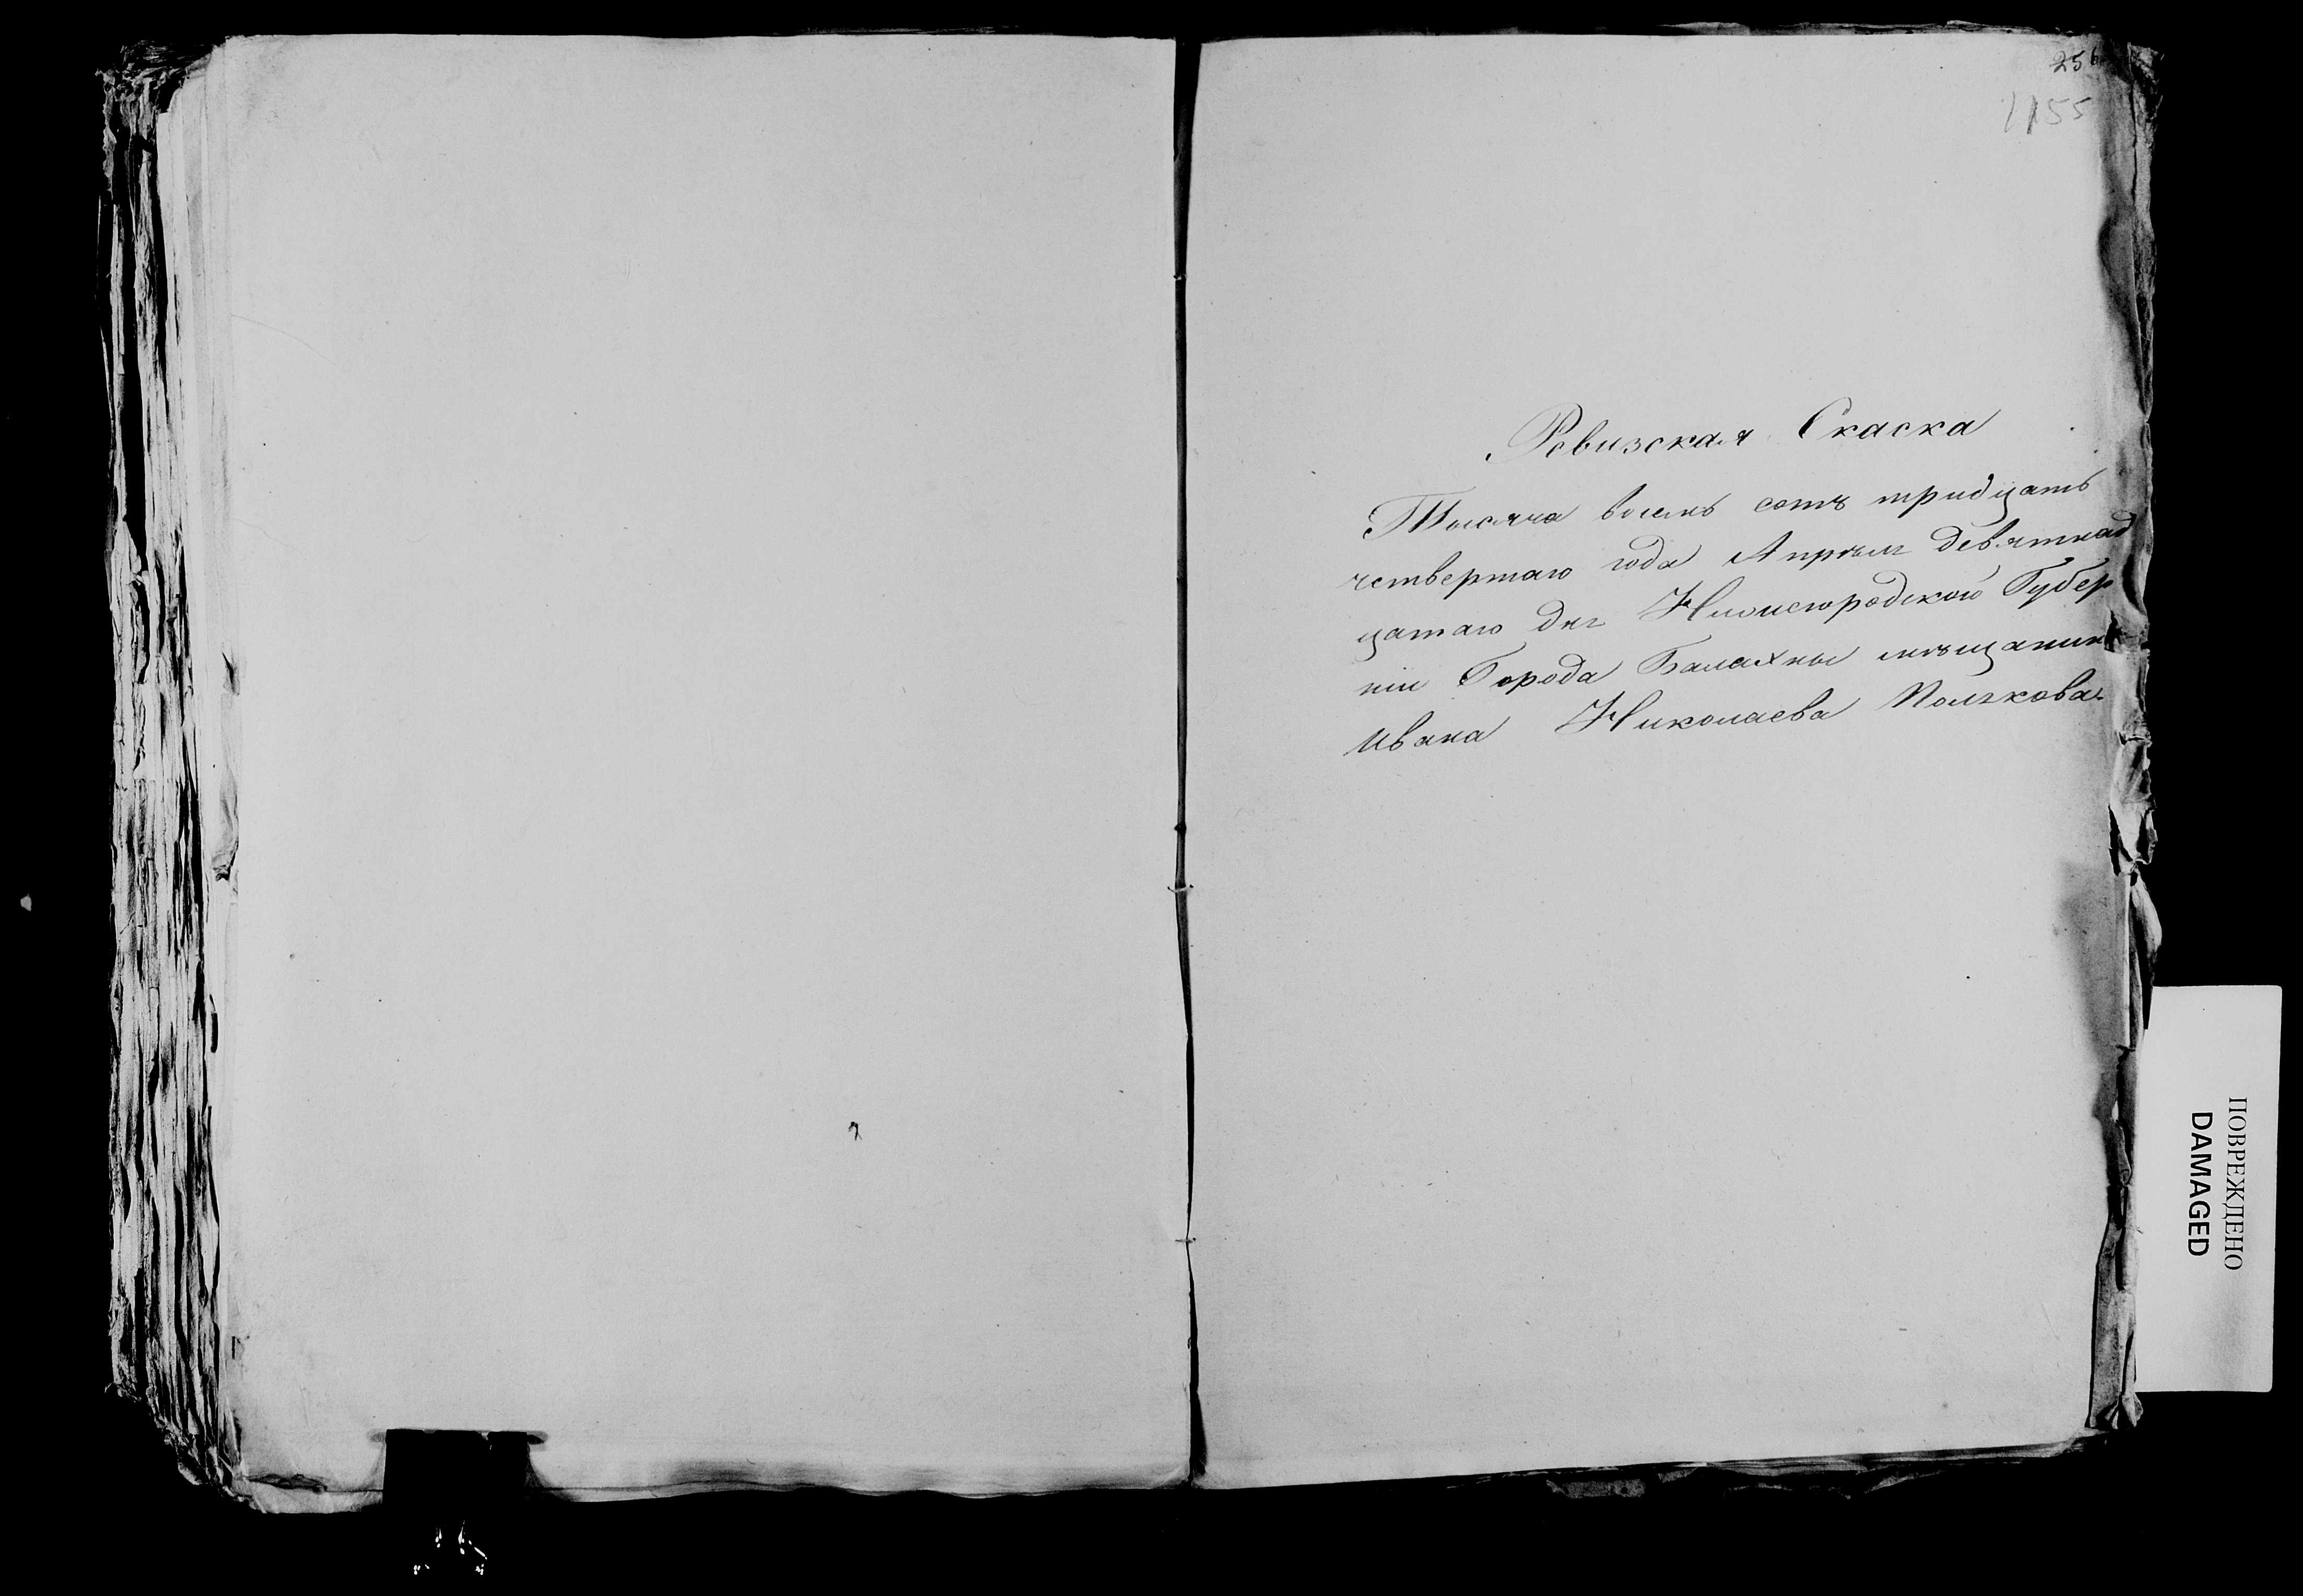 256
1155
Ревизская Скаска
Тысяча восемь сотъ тридцать
четвертаго года Апреля девятнад
цатаго дня Нижегородской Губер
ніи Города Балахны мещанин
Ивана Николаева Полякова
ПОВРЕЖДЕНО
DAMAGED